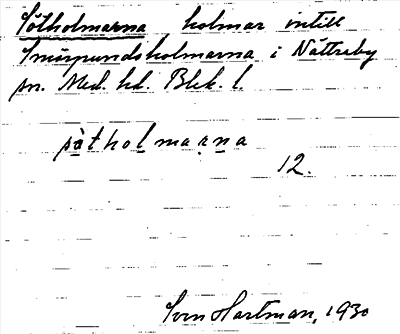 Sötholmarna holmar intill
Smörpundsholmarna i Nättraby
sn. Med. hd. Blek. l.
sòtholmarna
12.
Sven Hartman, 1930